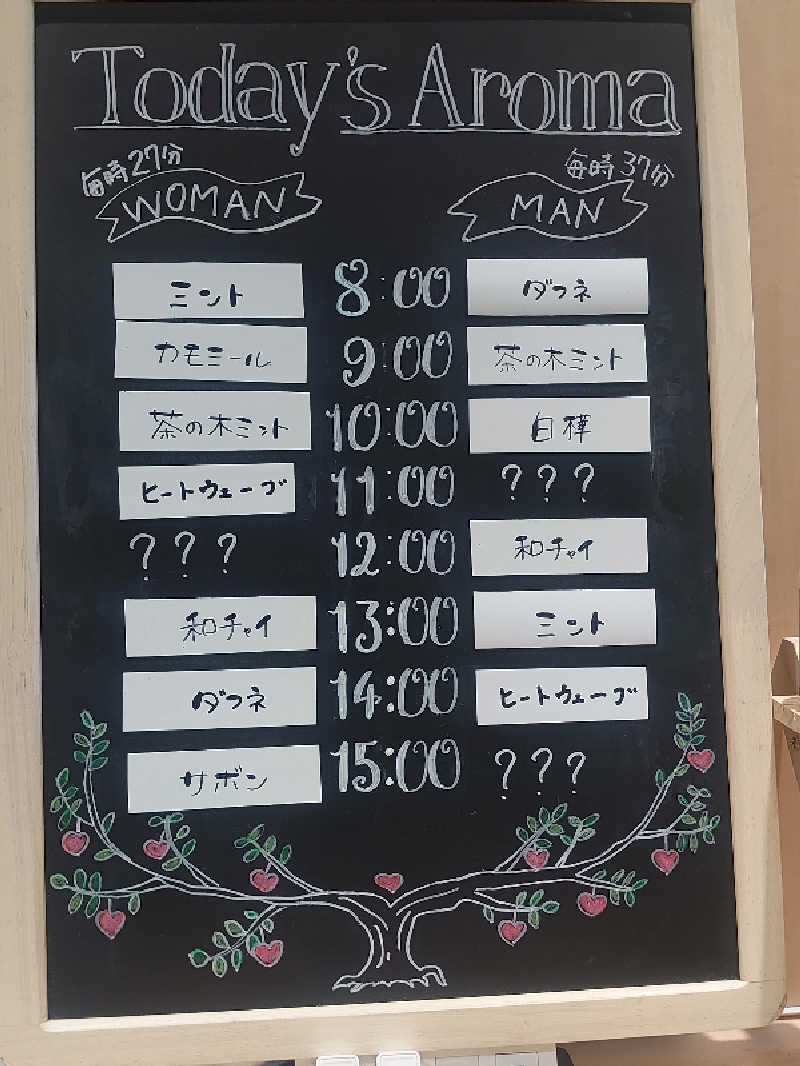 Today's Aroma
毎時27分 毎時37分
WOMAN MAN
ミント 8:00 ダフネ
カモミール 9:00 茶の木ミント
茶の木ミント 10:00 白樺
ヒートウェーブ 11:00 ???
??? 12:00 和チャイ
和チャイ 13:00 ミント
ダフネ 14:00 ヒートウェーブ
サボン 15:00 ???